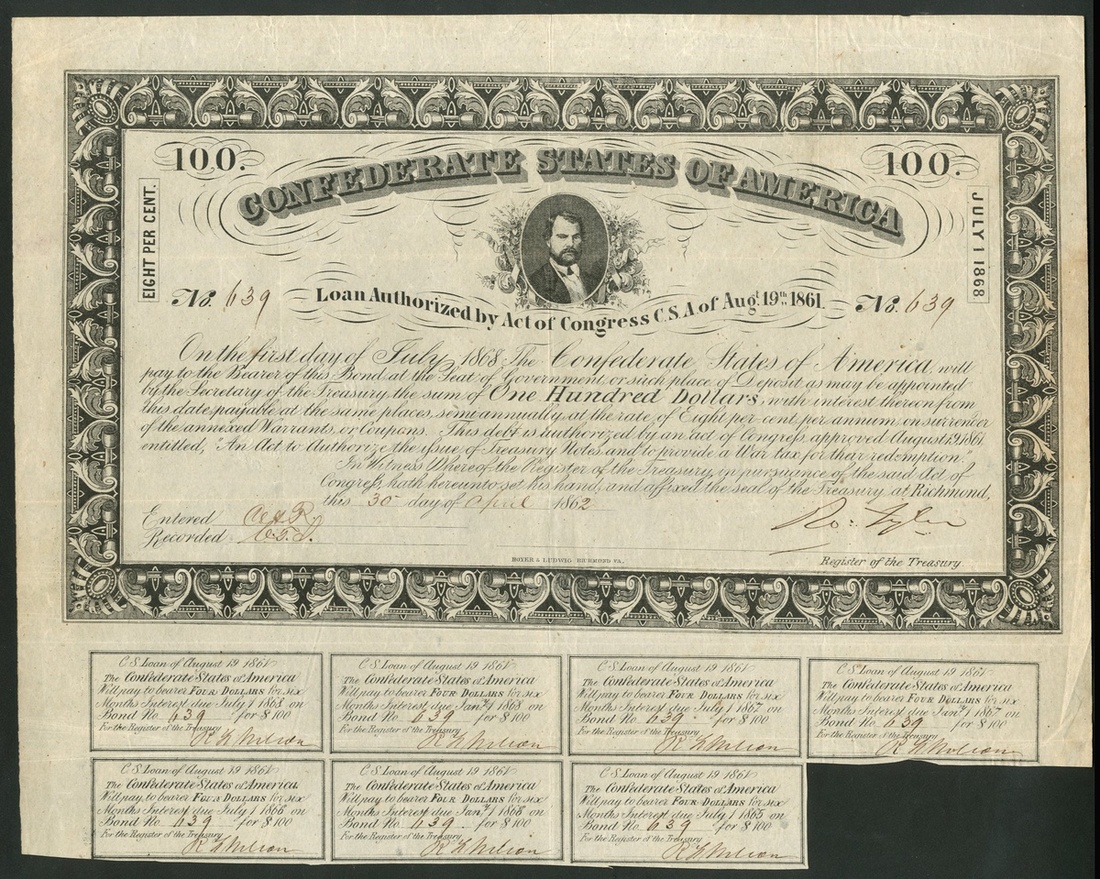 100.
CONFEDERATE STATES OF AMERICA
100.
EIGHT PER CENT.
JULY 1 1868
No. 639
Loan Authorized by Act of Congress C.S.A of Augt. 19th 1861.
No. 639
On the first day of July 1868, The Confederate States of America will
pay to the Bearer of this Bond, at the Seat of Government, or such place of Deposit as may be appointed
by the Secretary of the Treasury, the sum of One Hundred Dollars, with interest thereon from
this date, payable at the same places, semi annually, at the rate of Eight per cent, per annum, on surrender
of the annexed Warrants, or Coupons. This debt is authorized by an act of Congress, approved August 19, 1861.
entitled, "An Act to Authorize the issue of Treasury Notes and to provide a War tax for their redemption."
In Witness Whereof the Register of the Treasury, in pursuance of the said Act of
Congress, hath hereunto set his hand, and affixed the seal of the Treasury, at Richmond,
this 30 day of April 1862
Entered
Recorded
Ro: Tyler
HOYER & LUDWIG RICHMOND VA.,
Register of the Treasury.
C.S. Loan of August 19 1861
The Confederate States of America
Will pay to bearer FOUR DOLLARS for six
Months Interest due July 1 1868 on
Bond No. 639 for $100
For the Register of the Treasury
C.S. Loan of August 19 1861
The Confederate States of America
Will pay to bearer FOUR DOLLARS for six
Months Interest due Jany. 1 1868 on
Bond No. 639 for $100
For the Register of the Treasury
C.S. Loan of August 19 1861
The Confederate States of America
Will pay to bearer FOUR DOLLARS for six
Months Interest due July 1 1867 on
Bond No. 639 for $100
For the Register of the Treasury
C.S. Loan of August 19 1861
The Confederate States of America
Will pay to bearer FOUR DOLLARS for six
Months Interest due Jany. 1 1867 on
Bond No. 639 for $100
For the Register of the Treasury
C.S. Loan of August 19 1861
The Confederate States of America
Will pay to bearer FOUR DOLLARS for six
Months Interest due July 1 1866 on
Bond No. 639 for $100
For the Register of the Treasury
C.S. Loan of August 19 1861
The Confederate States of America
Will pay to bearer FOUR DOLLARS for six
Months Interest due Jany. 1 1866 on
Bond No. 639 for $100
For the Register of the Treasury
C.S. Loan of August 19 1861
The Confederate States of America
Will pay to bearer FOUR DOLLARS for six
Months Interest due July 1 1865 on
Bond No. 639 for $100
For the Register of the Treasury